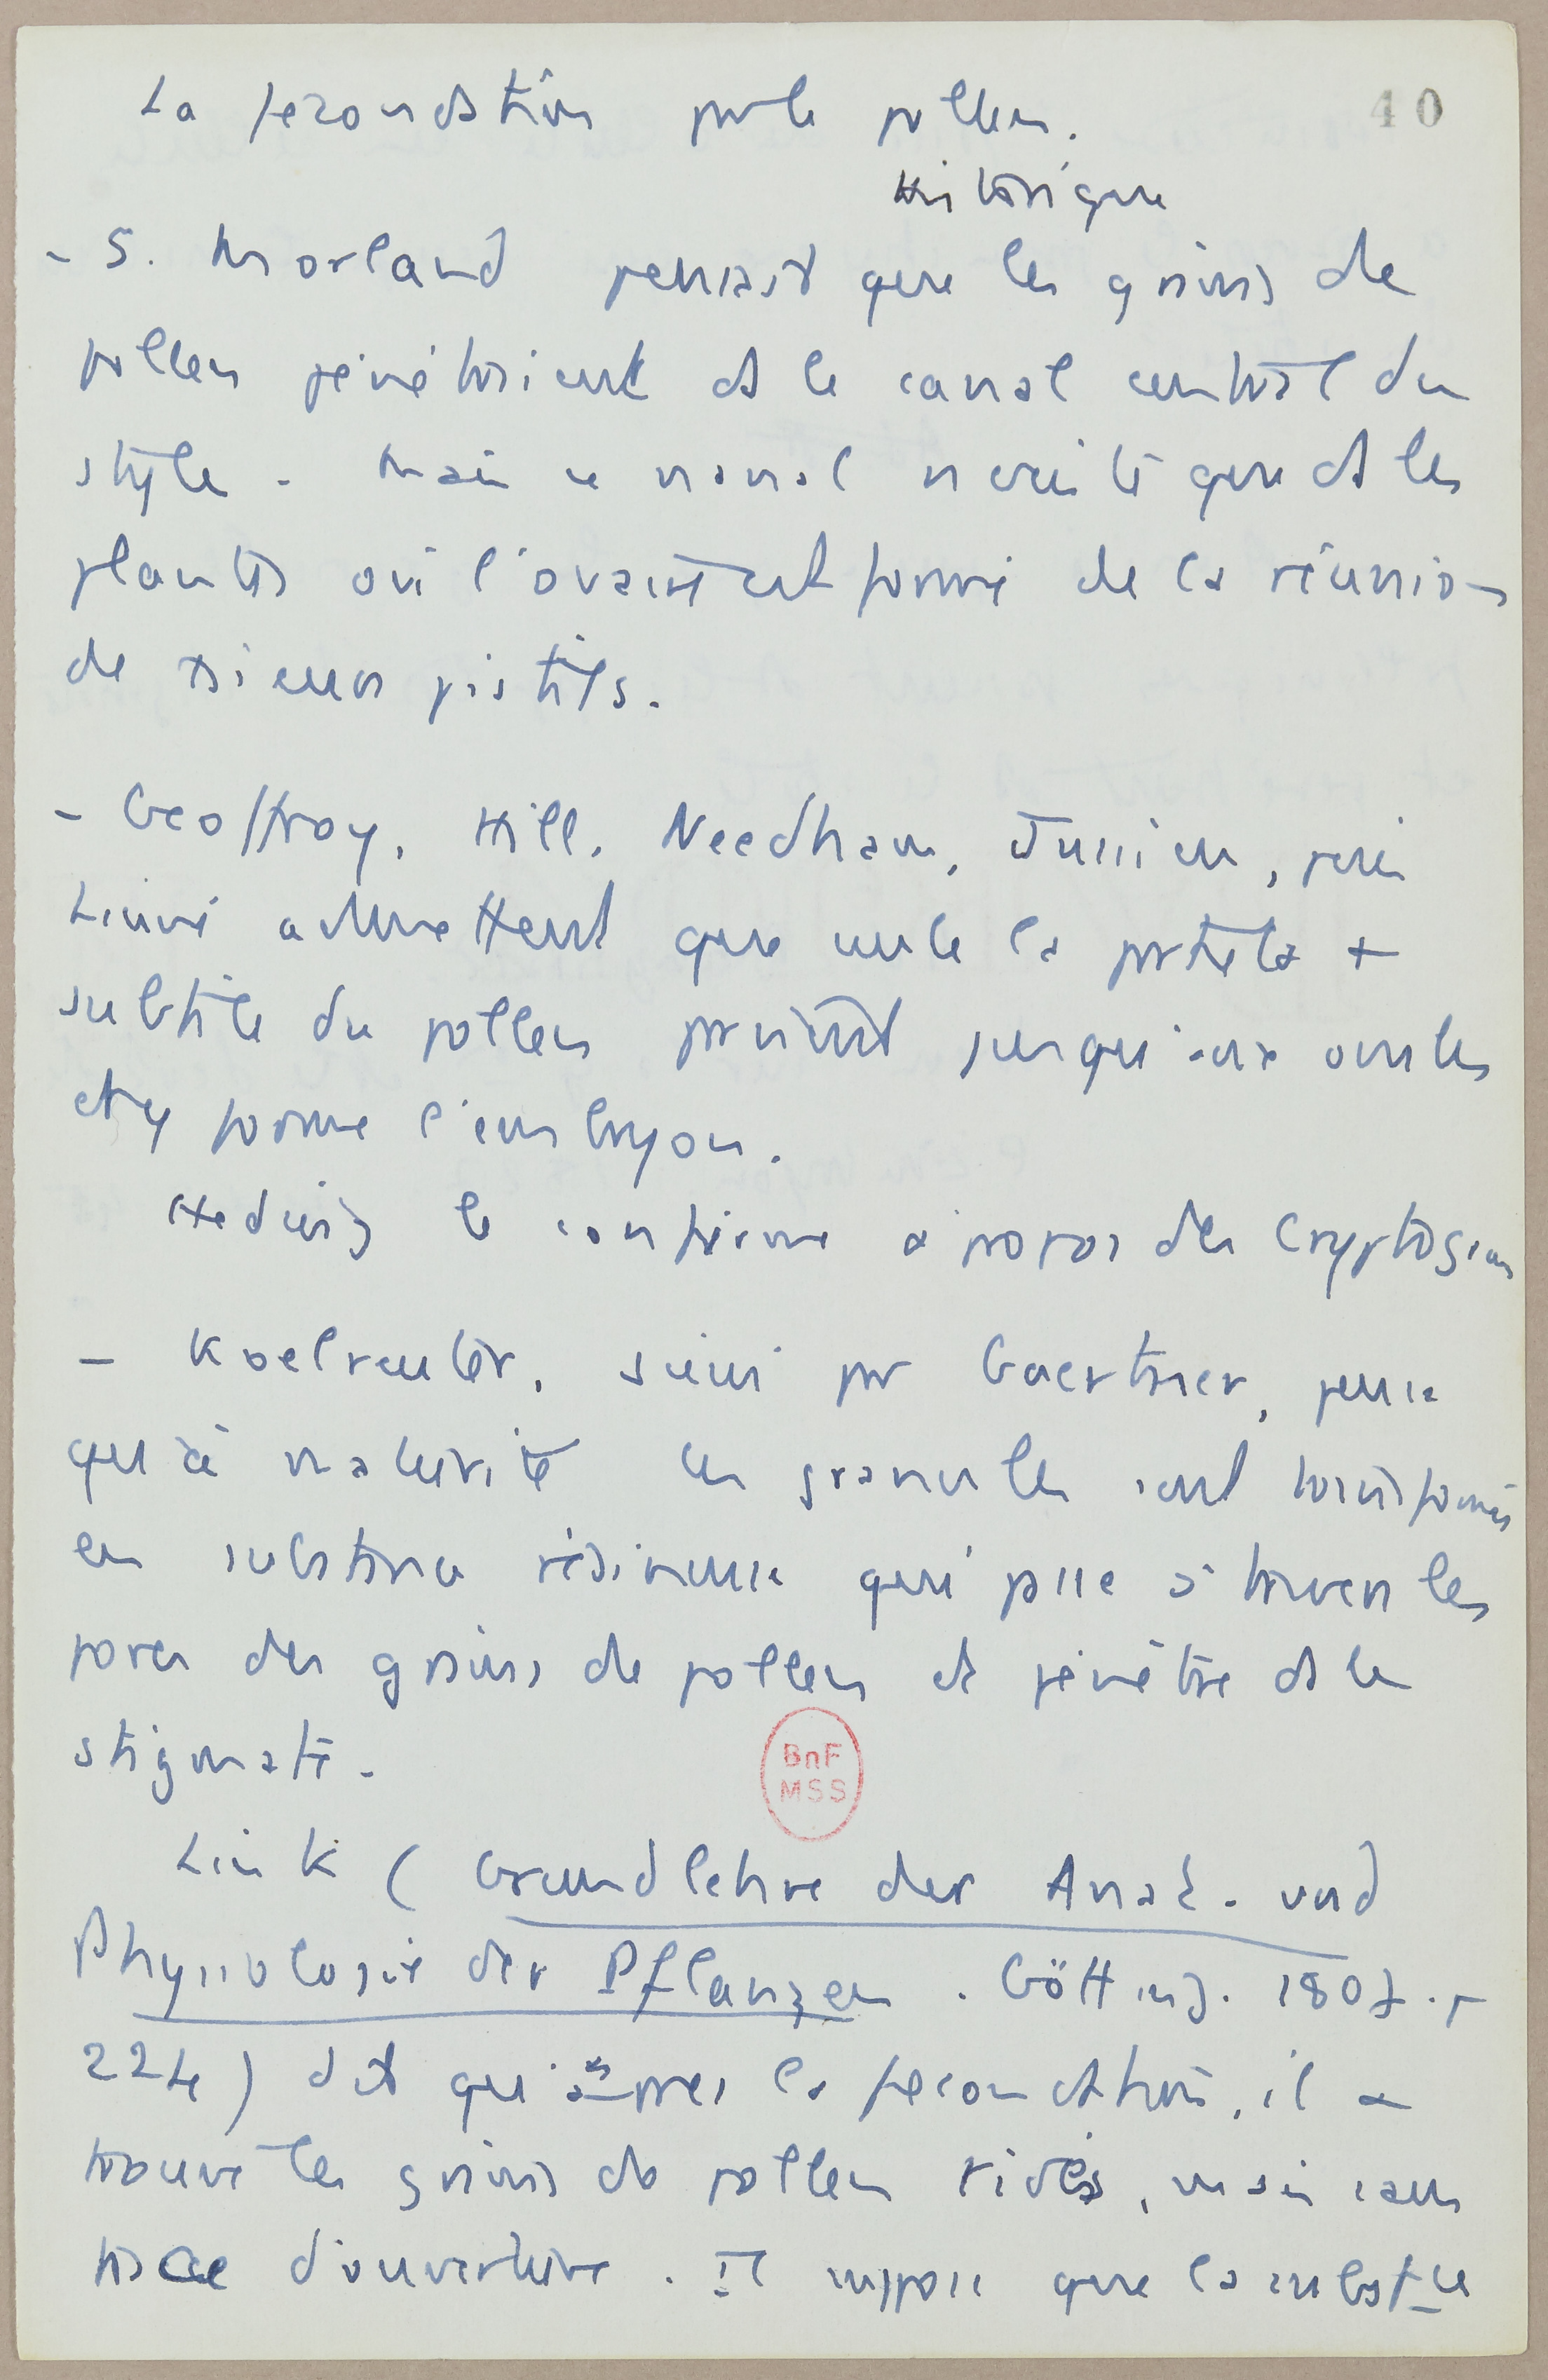 La fecondation par le pollen.
40
Historique
- S. Morland pensait que les grains de
pollen pénétraient ds le canal central du
style. Mais ce canal n'existe que ds les
plantes où l'ovaire est formé de la réunion
de plusieurs pistils.
- Geoffroy, Hill, Needham, Jussieu, puis
Linné admettent que seule la partie la +
subtile du pollen parvient jusqu'aux ovules
et y forme l'embryon.
Hedwig le confirme à propos des Cryptogam
- Koelreuter, suivi par Gaertner, pense
qu'à maturité les granules sont transformés
en substance résineuse qui passe à travers les
pores des grains de pollen et pénètre ds le
stigmate.
BnF
MSS
Link (Grundlehre der Anat. und
Physiologie der Pflanzen. Götting. 1807. p
224) dit qu'après la fécondation, il a
trouvé les grains de pollen ridés, mais sans
trace d'ouverture. Il suppose que la substce